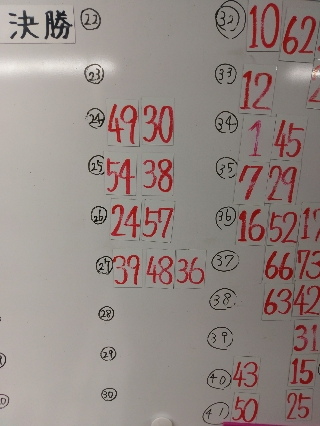 決勝
㉒
㉓
㉔ 49 30
㉕ 54 38
㉖ 24 57
㉗ 39 48 36
㉘
㉙
㉚
㉜ 10 62
㉝ 12
㉞ 1 45
㉟ 7 29
㊱ 16 52
㊲ 66 73
㊳ 63 42
㊴ 31
㊵ 43 15
㊶ 50 25